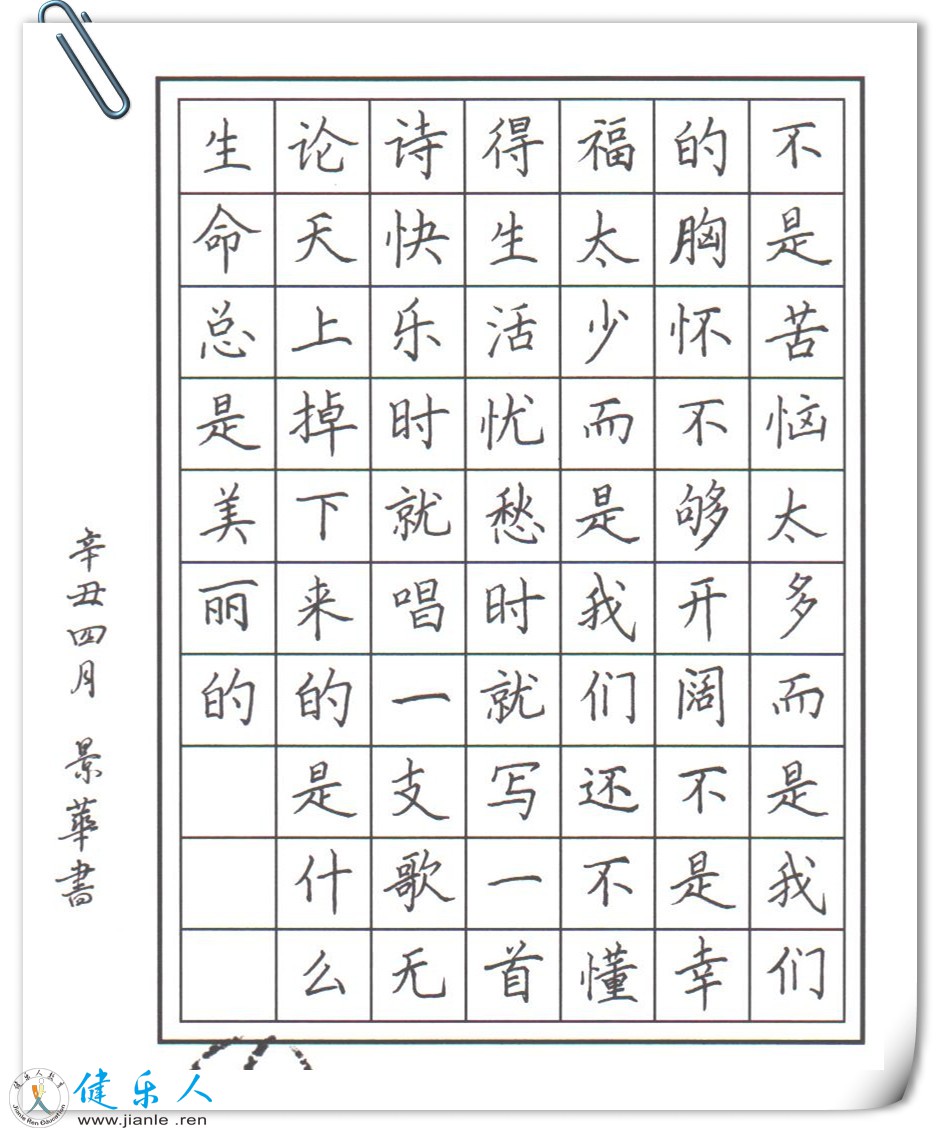 不是苦恼太多而是我们
的胸怀不够开阔不是幸
福太少而是我们还不懂
得生活忧愁时就写一首
诗快乐时就唱一支歌无
论天上掉下来的是什么
生命总是美丽的
辛丑四月 景華書
健乐人教育
Jianle Ren Education
健乐人
www.jianle .ren